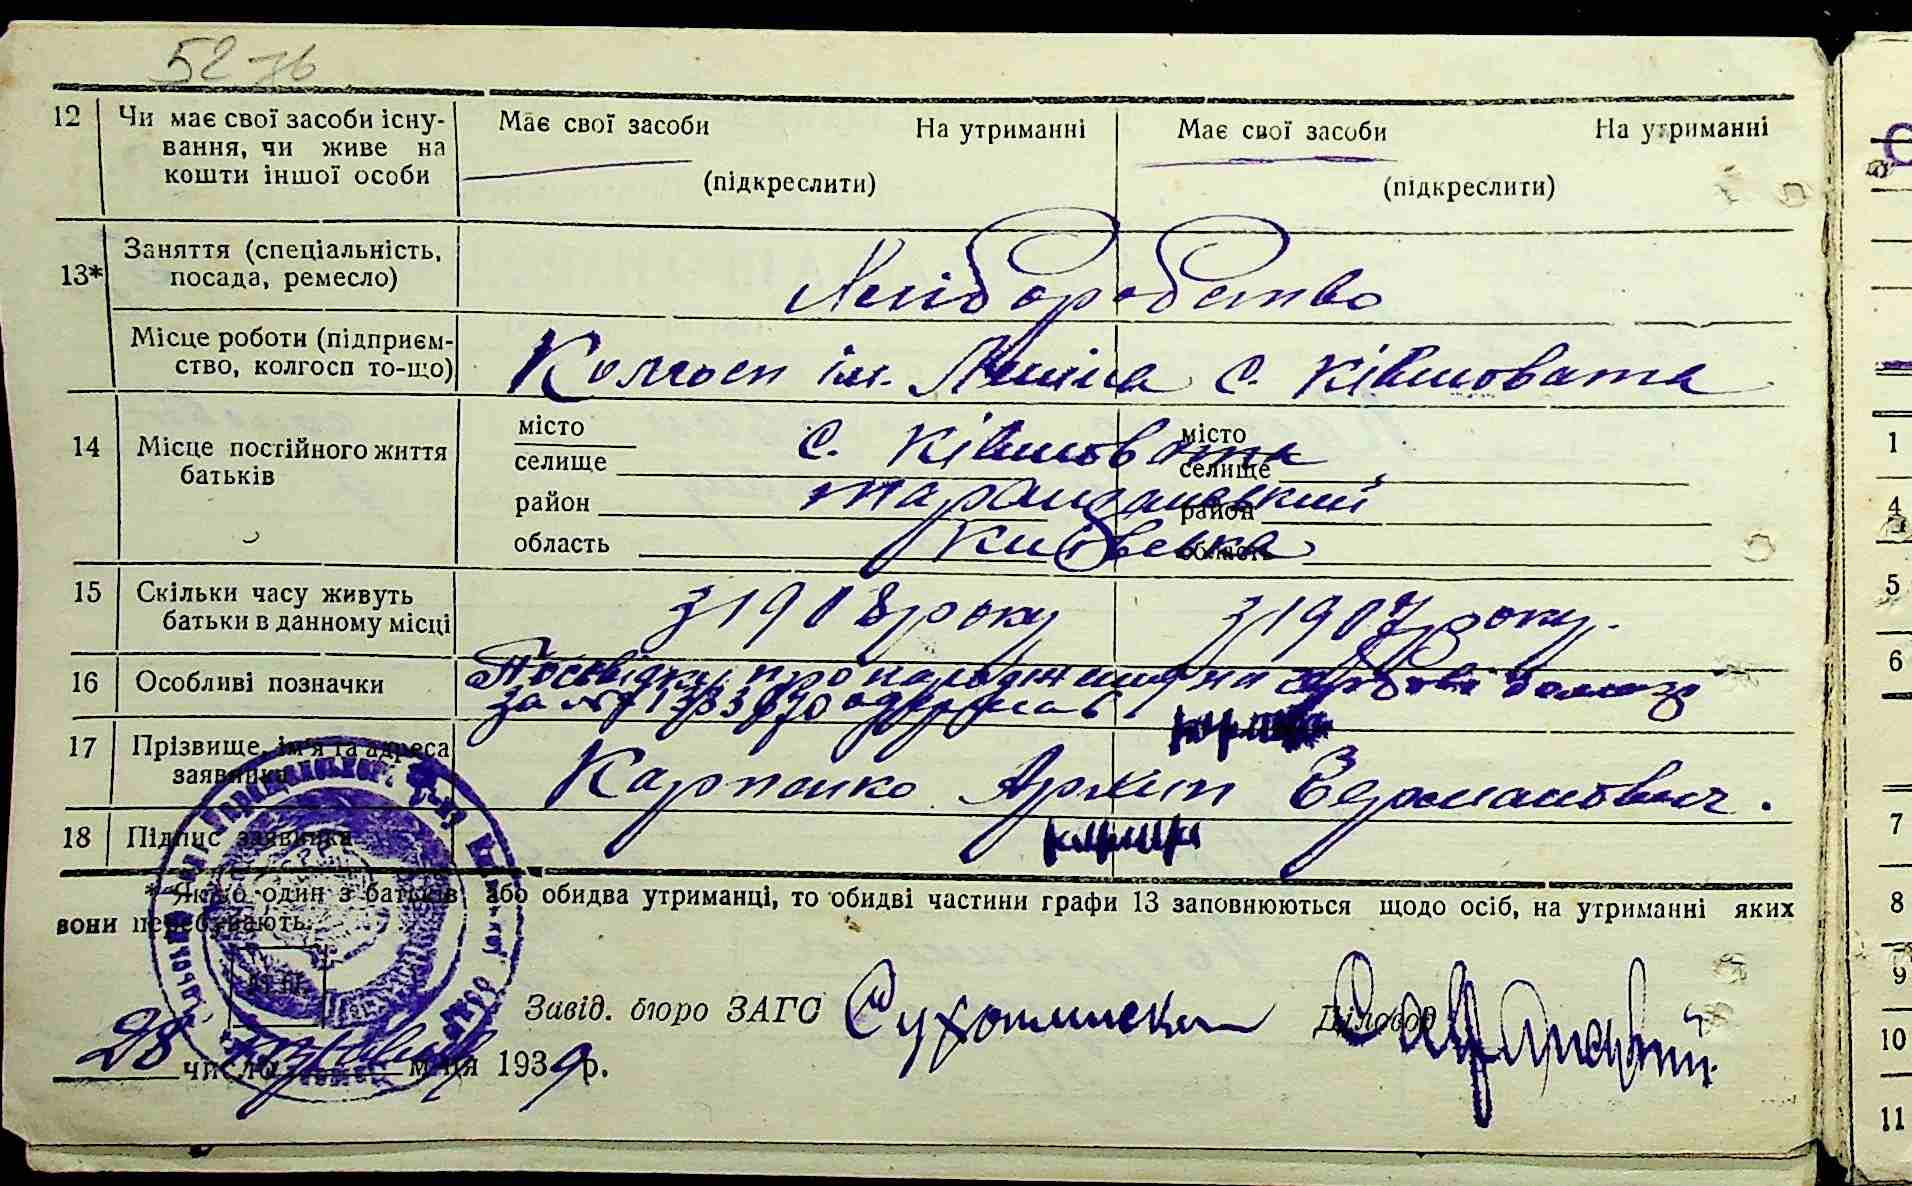 52 зв
12 Чи має свої засоби існу-
вання, чи живе на
кошти іншої особи
Має свої засоби На утриманні
(підкреслити)
Має свої засоби На утриманні
(підкреслити)
13* Заняття (спеціальність,
посада, ремесло)
Хліборобство
Місце роботи (підприєм-
ство, колгосп то-що)
Колгосп ім. Леніна с. Ківшовата
14 Місце постійного життя
батьків
місто
селище
район
область
місто
селище
район
область
с. Ківшовата
Таращанський
Київська
15 Скільки часу живуть
батьки в данному місці
з 1908 року
з 1907 року.
16 Особливі позначки
Посвідку про народження на
за № одержав
17 Прізвище, ім'я та адреса
заявника
Карпенко Архип Германович.
18 Підпис заявника
* Якщо один з батьків або обидва утриманці, то обидві частини графи 13 заповнюються щодо осіб, на утриманні яких
вони перебувають.
М. П.
Завід. бюро ЗАГС Сухолинська Діловод
28 число м-ця 1939 р.
1
4
5
6
7
8
9
10
11